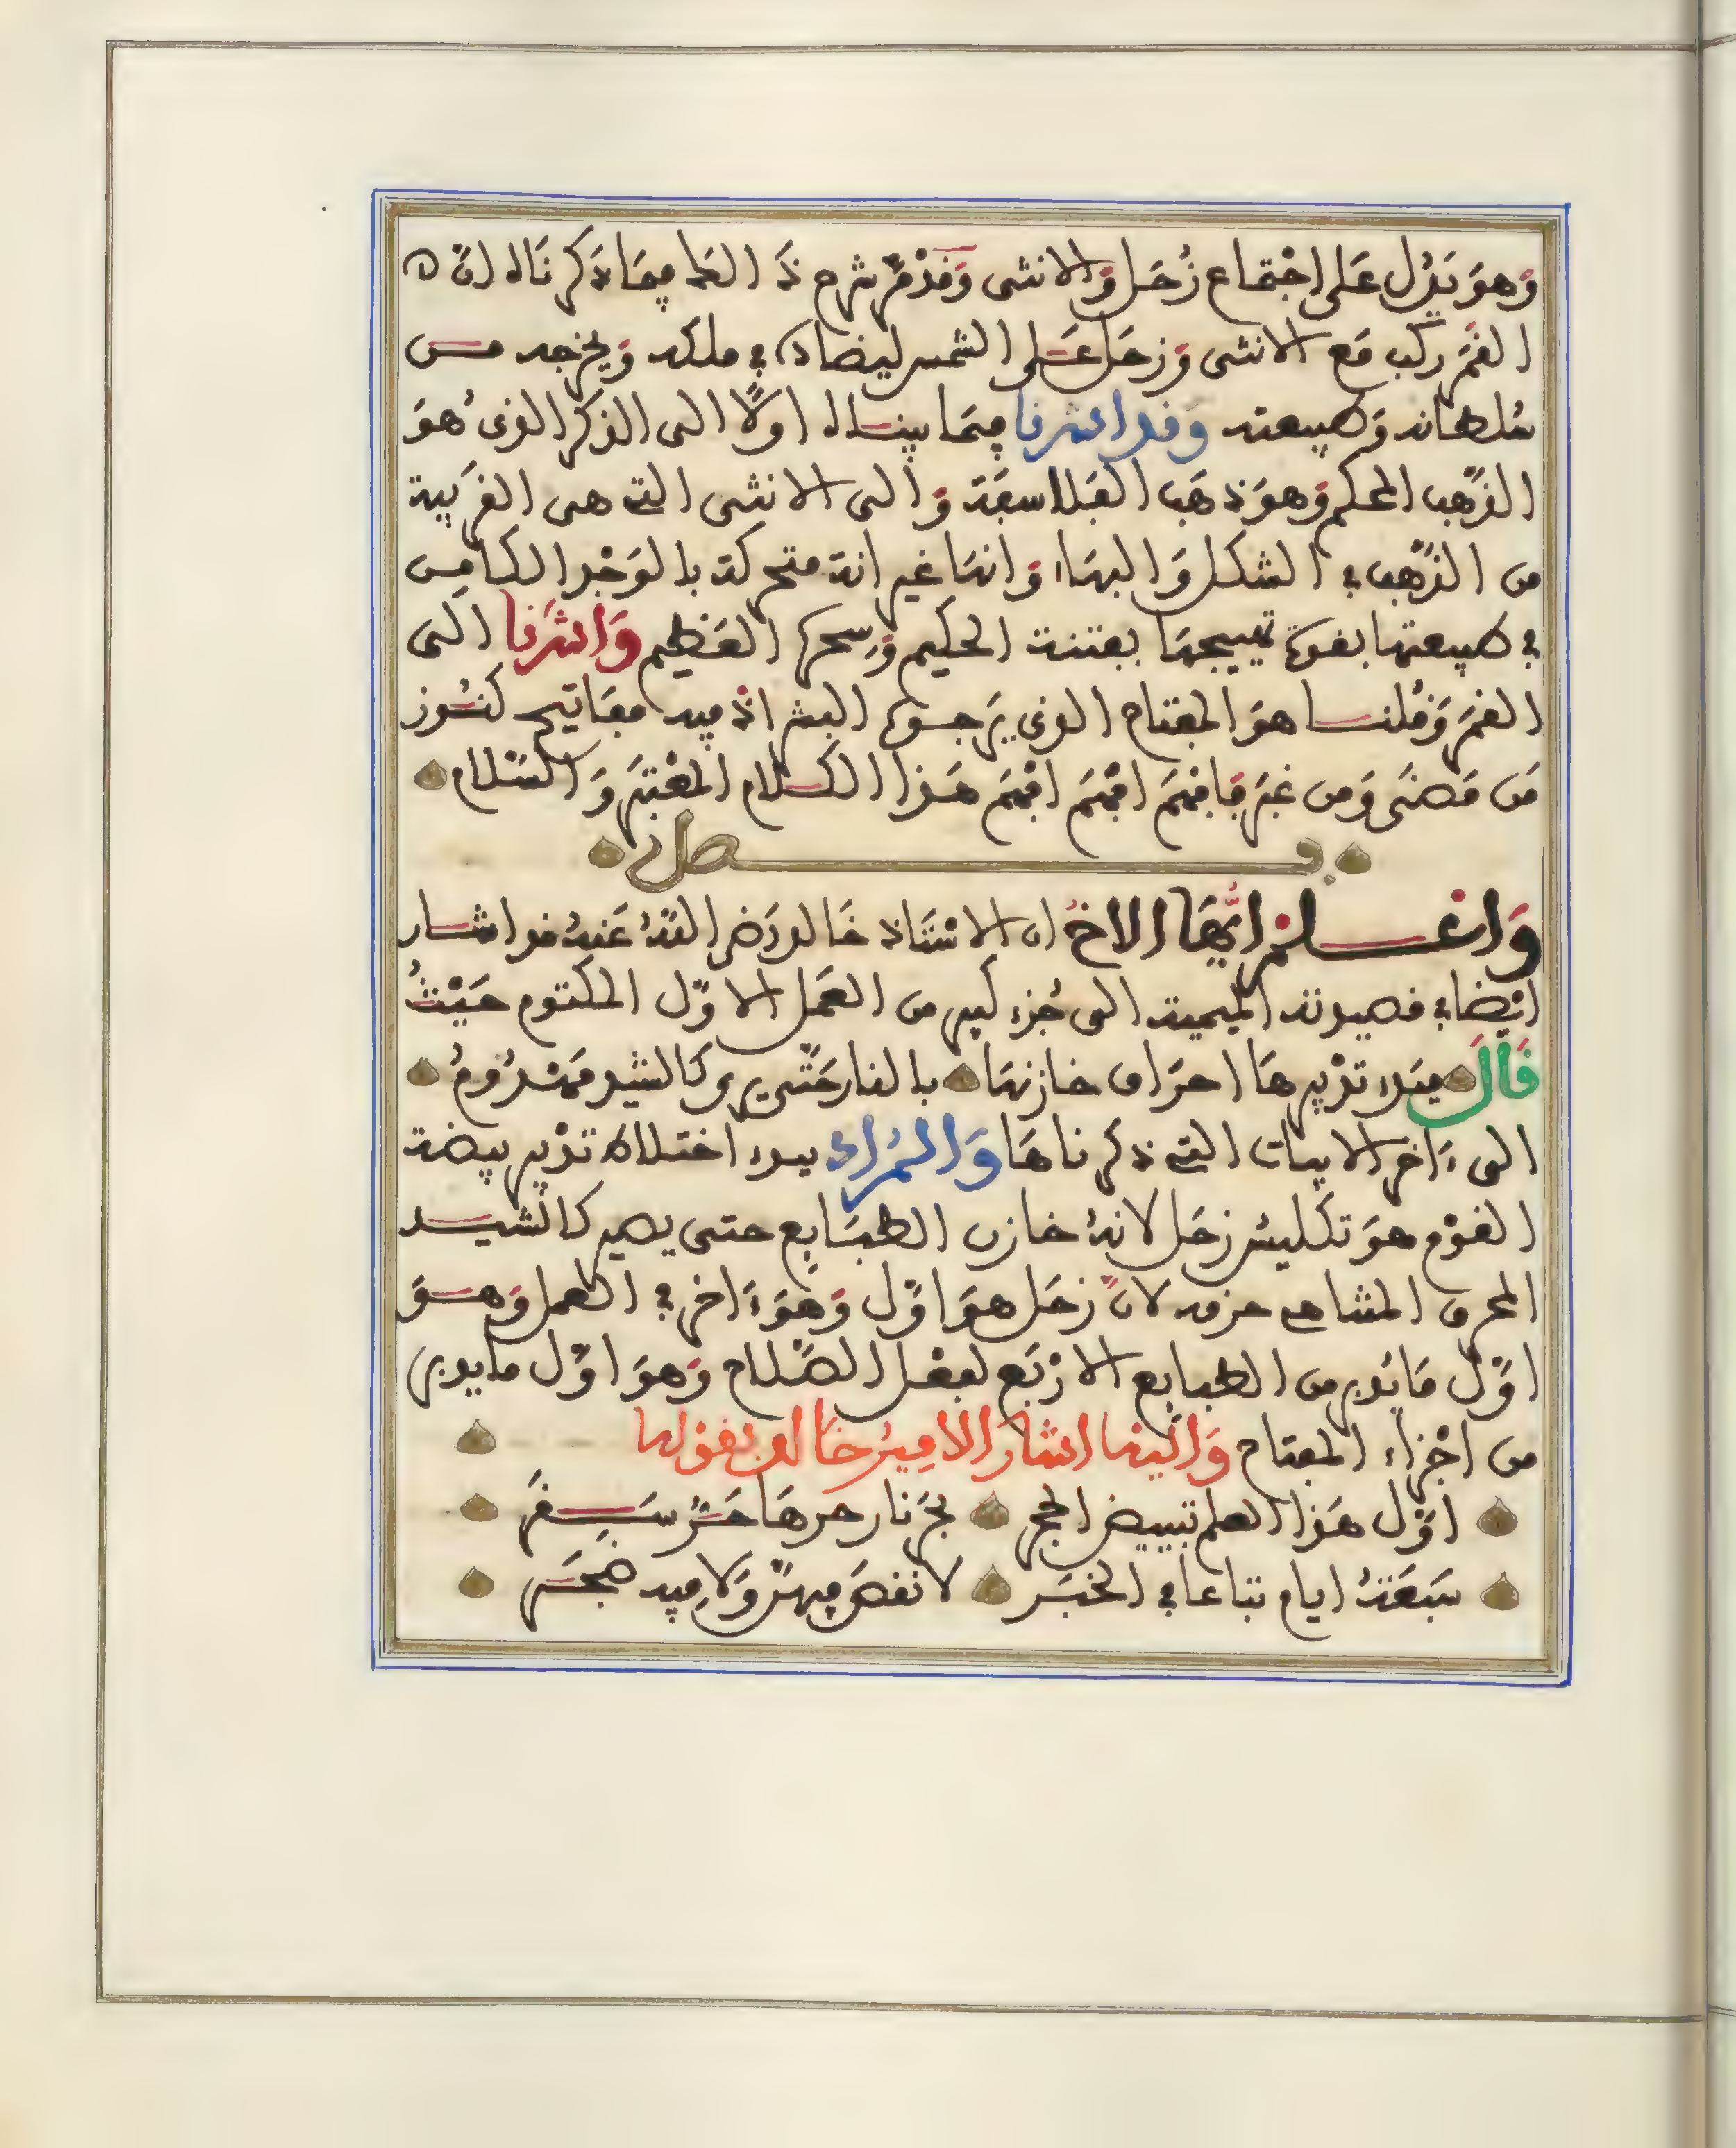 وَهوَ يَدُل عَلى اجْتماع زُحَل وَالانثى وَقَدْ مَرَّ شرح ذَالكَ فِيمَا ذَكرنَاه لانّ
القمَر ركب مَع الانثى وَزحَل عَلى الشمس ليضاده في ملكه وَيخرجه مــن
سُلطانه وَطبيعته وَقد اشرنا فِيمَا بينـاه اولًا الى الذكر الذى هوَ
الذهَب المحكم وَهوَ ذهَب الفلاسفَة وَالى الانثى التى هى القرَيبة
من الذهَب في الشكل وَالبهَاء وَانهَا غير انه متحركة بالوَجْد الكامِن
في طبيعتها بقوة تهييجهَا بفتنة الحكيم وَسِحره العَظيم وَاشَرنا الى
القمَر وَقُلنـا هوَ المفتاح الذى يَرجـوه البشر اذ فيه مفَاتيح كنـُوز
مَن مَضَى وَمن غبَر فَافهَم افهَم افهَم هَذا الكـلام المعْتبَر وَالسَّلام
فــصل
وَاعْــلمْ ايُّهَا الاخ ان الاسْتَاذ خَالد رَضى اللهُ عَنهُ قد اشـار
ايْضا في قصيدته الميمية الى جُزء كبير من العَمل الاوّل المكتوم حَيْثُ
قَالَ مبَدء تدْبيرهَا احرَاق خازنهَا بالنار حَتَّى يرى كالشيد مَهْدُومُ
الى ءَاخر الابيات التى ذكرناهَا وَالمُرَاد ببدء اختلاط تدْبير بيضة
القوْم هوَ تكليسُ زحَل لانهُ خازن الطبَايع حتى يصير كالشيـد
المحرق المتناهى حرقه لانّ زحَل هوَ اوّل وَهوَ ءَاخر في العمل وَهـوَ
اوّل مَا يُدبر من الطبايع الارْبَع لفعْل الصَّلاح وَهوَ اوّل ما يدبر
من اجْزاء المفتاح وَاليْهَا اشَارَ الامِيرُ خَالد بقوْلهَا
اوّل هَذا العلم تبييض الحجر بحَر نار حرهَا حَـرّ سَــقَر
سَبعَةُ ايام تباعا في الخبَـر لا نقصَ فِيهنّ وَلا فِيه ضجَـر